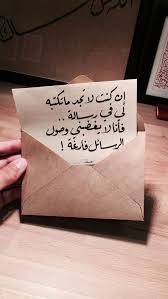 إن كنت لا تجد ما تكتبه
لي في رسالة ..
فأنا لا يغضبني وصول
الرسائل فارغة !